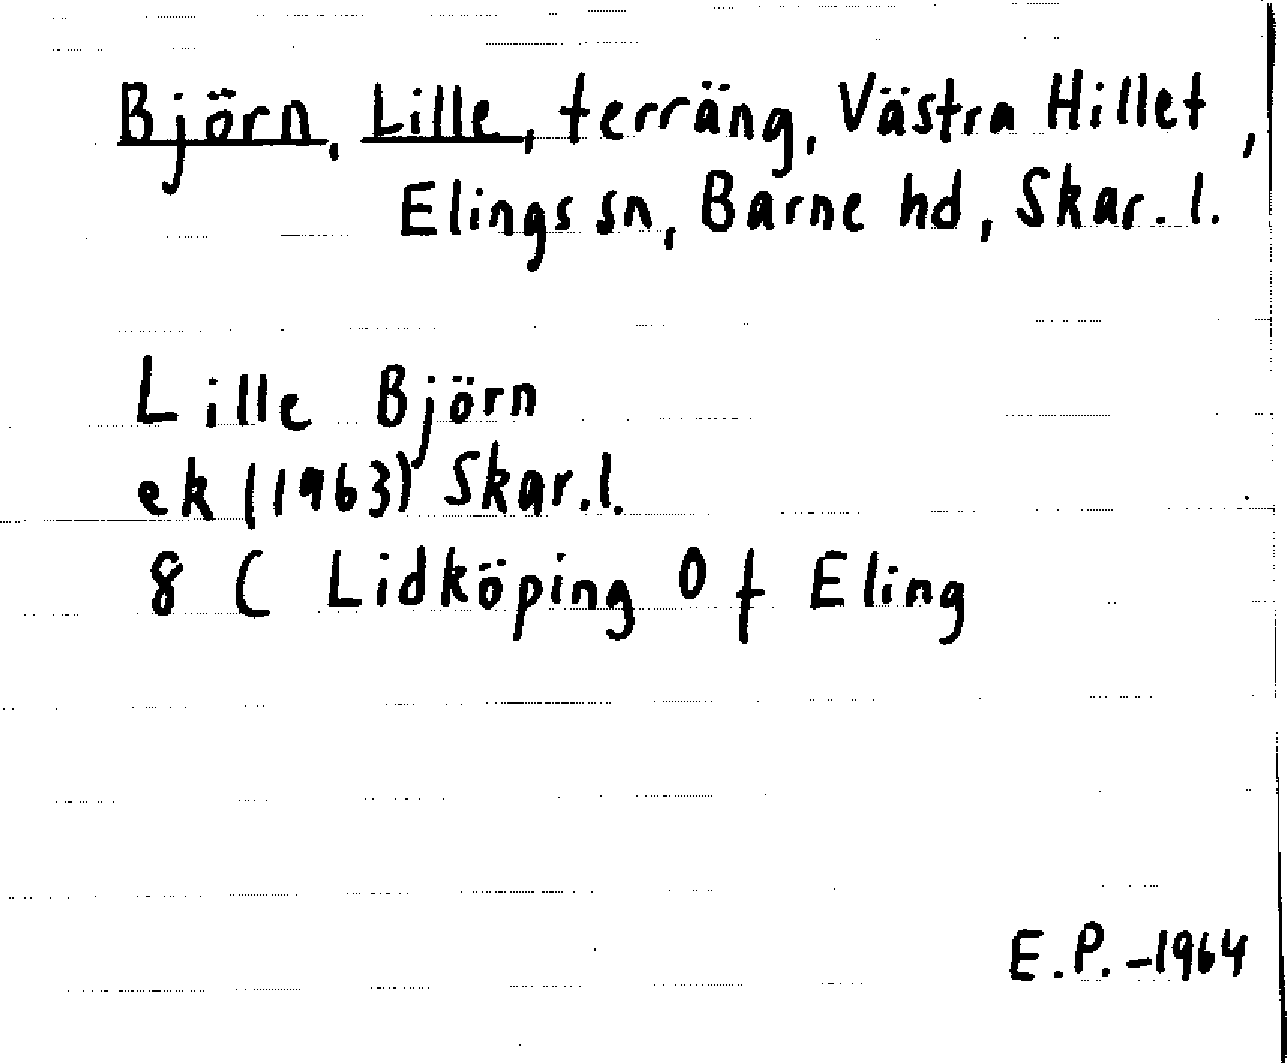 Björn, Lille, terräng, Västra Hillet,
Elings sn, Barne hd, Skar. l.
Lille Björn
ek (1963) Skar. l.
8 C Lidköping 0 f Eling
E. P. -1964